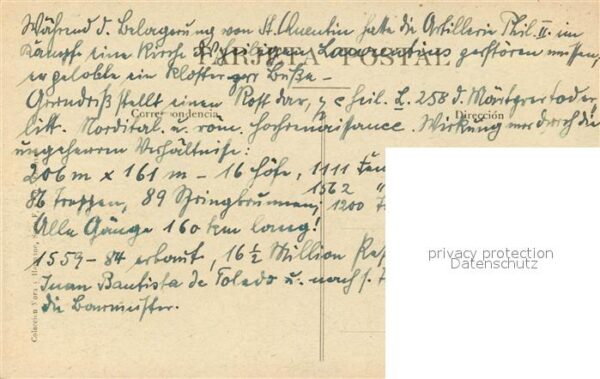 Während d. Belagerung von St. Quentin hatte die Artillerie Phil. II. im
Kampf eine Kirche d. heiligen Laurentius zerstören müssen,
TARJETA POSTAL
er gelobte ein Kloster zur Buße –
Grundriß stellt einen Rost dar, heil. L. 258 d. Märtyrertod erlitt.
Correspondencia
Dirección
Nordital. u. röm. Hochrenaissance. Wirkung nur durch die
ungeheuren Verhältnise:
206 m x 161 m – 16 Höfe, 1111
1562 "
86 Treppen, 89 Springbrunnen, 1200
Alle Gänge 160 km lang!
1559–84 erbaut, 16 ½ Million
Juan Bautista de Toledo u. nach s.
die Baumeister.
privacy protection
Datenschutz